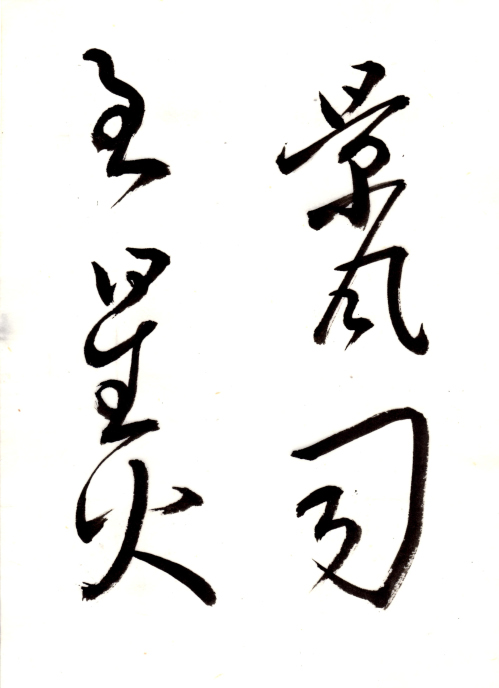 景風司
至星火